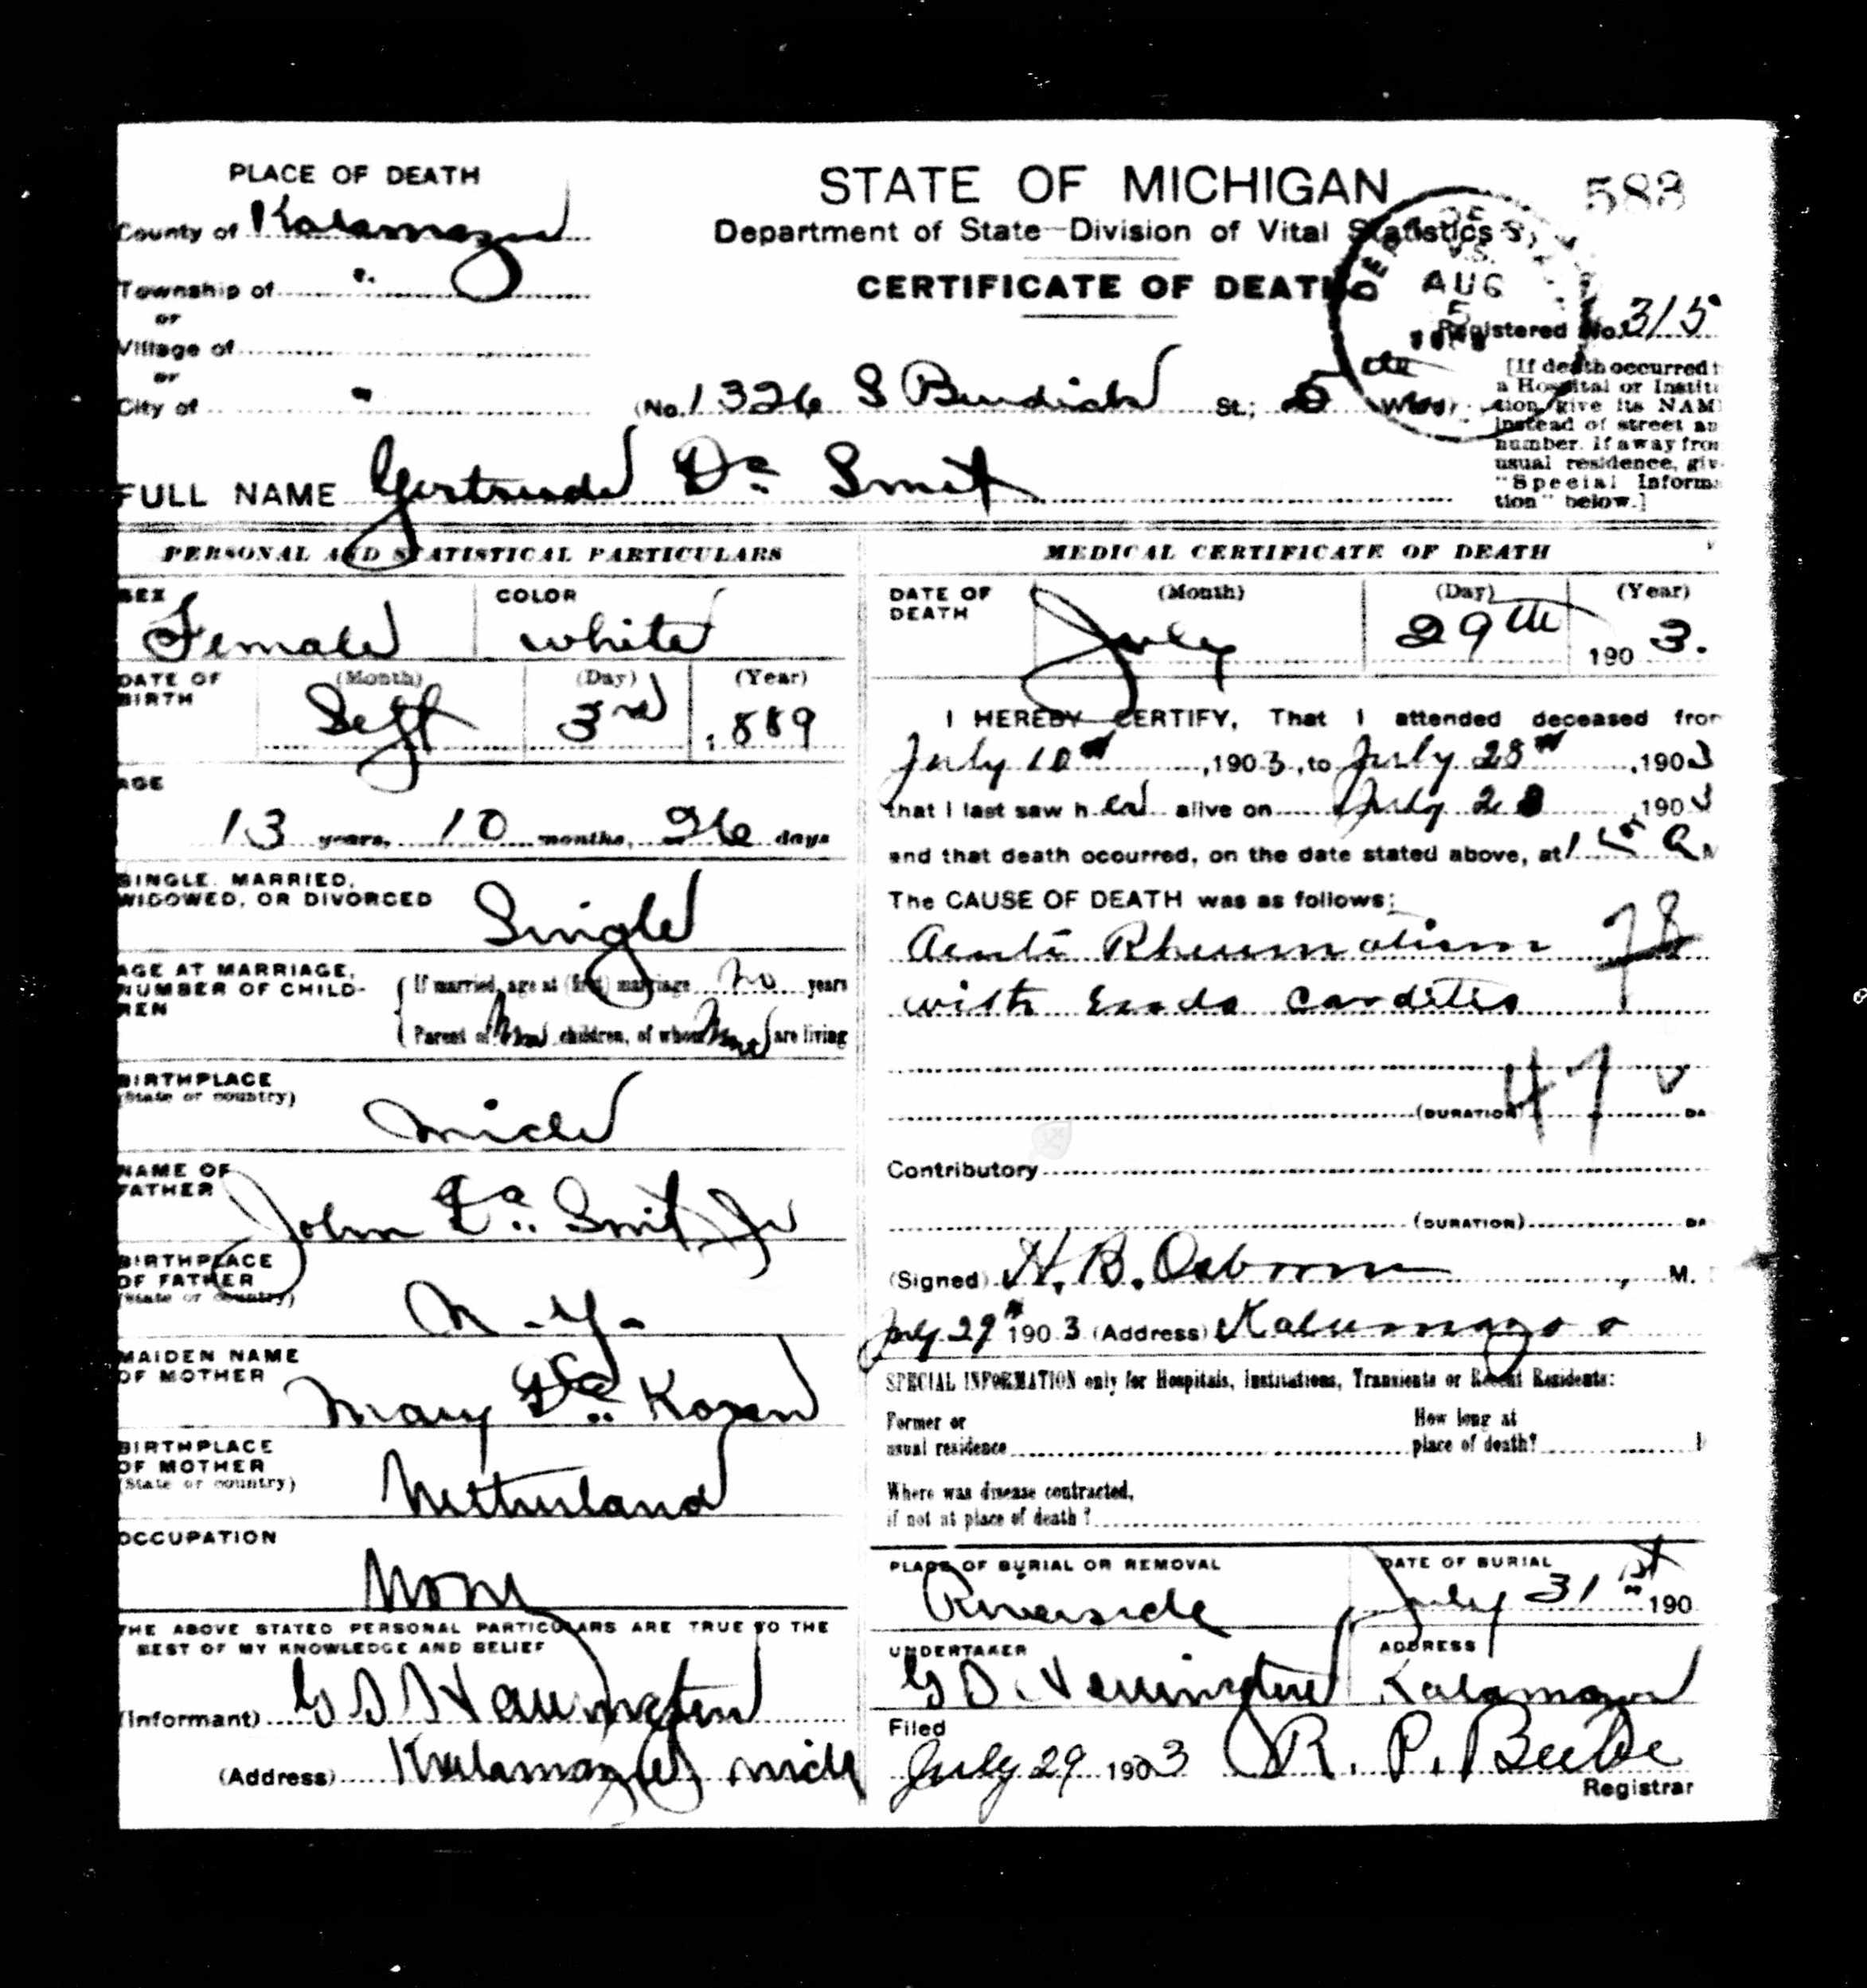 PLACE OF DEATH
County of Kalamazoo
Township of "
or
Village of
or
City of "
STATE OF MICHIGAN
Department of State—Division of Vital Statistics
CERTIFICATE OF DEATH
583
AUG
5
Registered No. 315
(No. 1326 S Burdick St.; 5th Ward)
[If death occurred
a Hospital or Instit
tion, give its NAM
instead of street an
number. If away fro
usual residence, giv
"Special Inform
tion" below.]
FULL NAME Gertrude De Smit
PERSONAL AND STATISTICAL PARTICULARS
SEX
Female
COLOR
white
DATE OF BIRTH
(Month) (Day) (Year)
Sept 3rd 1889
AGE
13 years, 10 months, 26 days
SINGLE, MARRIED,
WIDOWED, OR DIVORCED
Single
AGE AT MARRIAGE,
NUMBER OF CHILD-
REN
If married, age at (first) marriage no years
Parent of None children, of whom None are living
BIRTHPLACE
(State or country)
Mich
NAME OF
FATHER
John De Smit Jr
BIRTHPLACE
OF FATHER
(State or country)
N.Y.
MAIDEN NAME
OF MOTHER
Mary De
BIRTHPLACE
OF MOTHER
(State or country)
Netherland
OCCUPATION
None
THE ABOVE STATED PERSONAL PARTICULARS ARE TRUE TO THE
BEST OF MY KNOWLEDGE AND BELIEF
(Informant)
(Address) Kalamazoo Mich
MEDICAL CERTIFICATE OF DEATH
DATE OF
DEATH
(Month) (Day) (Year)
July 29th 1903.
I HEREBY CERTIFY, That I attended deceased from
July 10th, 1903, to July 28th, 1903
that I last saw her alive on July 28, 1903
and that death occurred, on the date stated above, at 1 A M
The CAUSE OF DEATH was as follows:
Acute Rheumatism 78
with Endo Carditis
47
(DURATION) DA
Contributory
(DURATION) DA
(Signed) H. B. Osborne, M.
July 29th 1903 (Address) Kalamazoo
SPECIAL INFORMATION only for Hospitals, Institutions, Transients or Recent Residents:
Former or
usual residence
How long at
place of death?
Where was disease contracted,
if not at place of death?
PLACE OF BURIAL OR REMOVAL
Riverside
DATE OF BURIAL
July 31st 190
UNDERTAKER
ADDRESS
Kalamazoo
Filed
July 29 1903 R. P. Beebe
Registrar